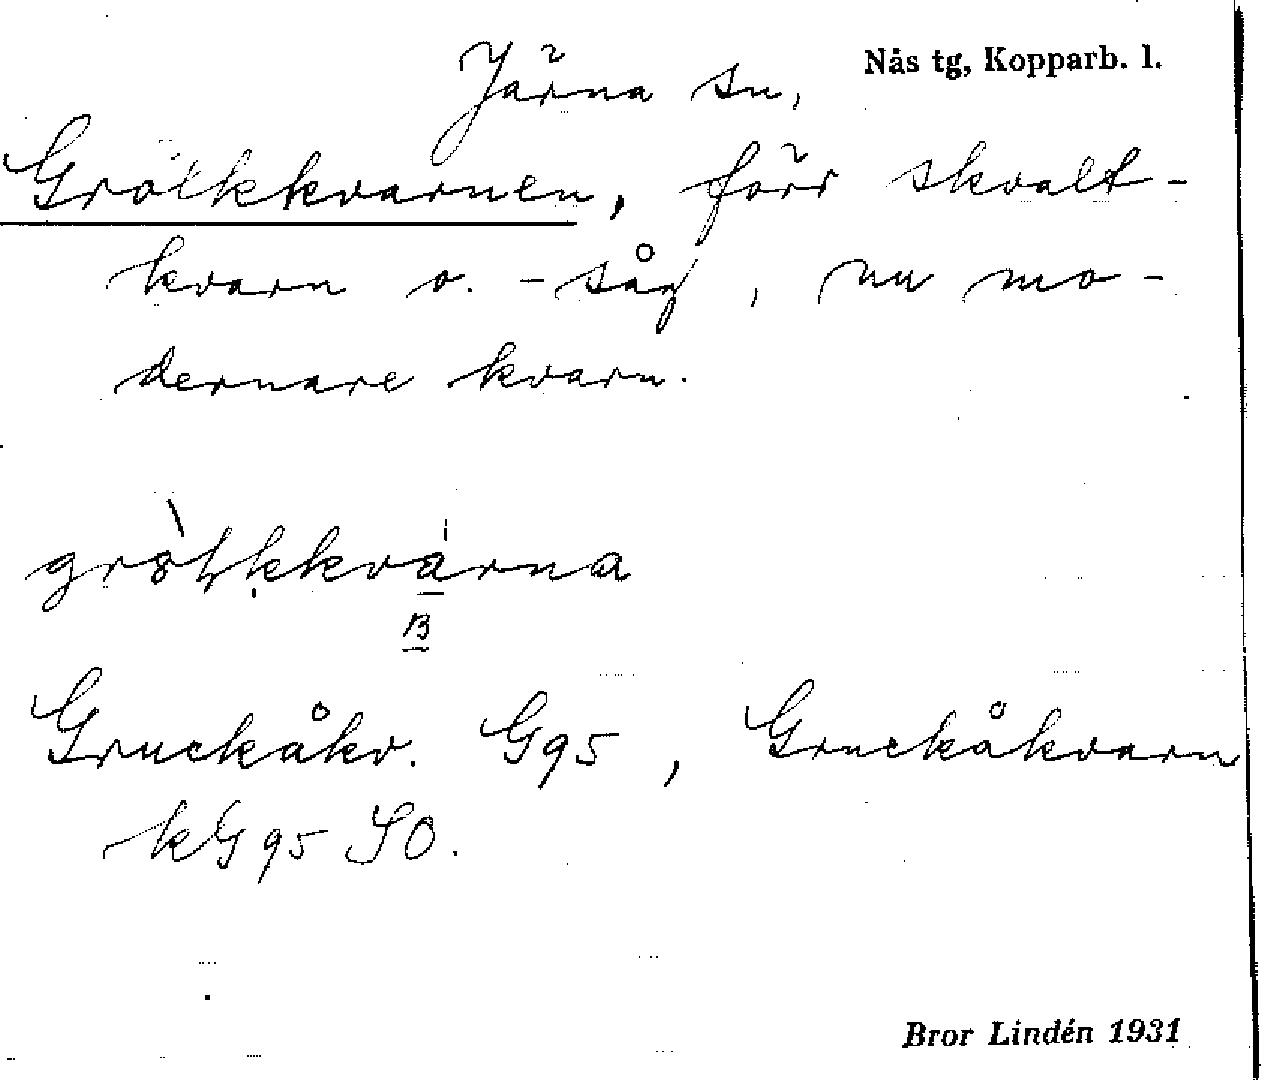 Järna sn, Nås tg, Kopparb. l.
Grölkkvarnen, förr skvalt-
kvarn o. -såg, nu mo-
dernare kvarn.
B
Gruckåkv. G95, Gruckåkvarn
kG95 SO.
Bror Lindén 1931